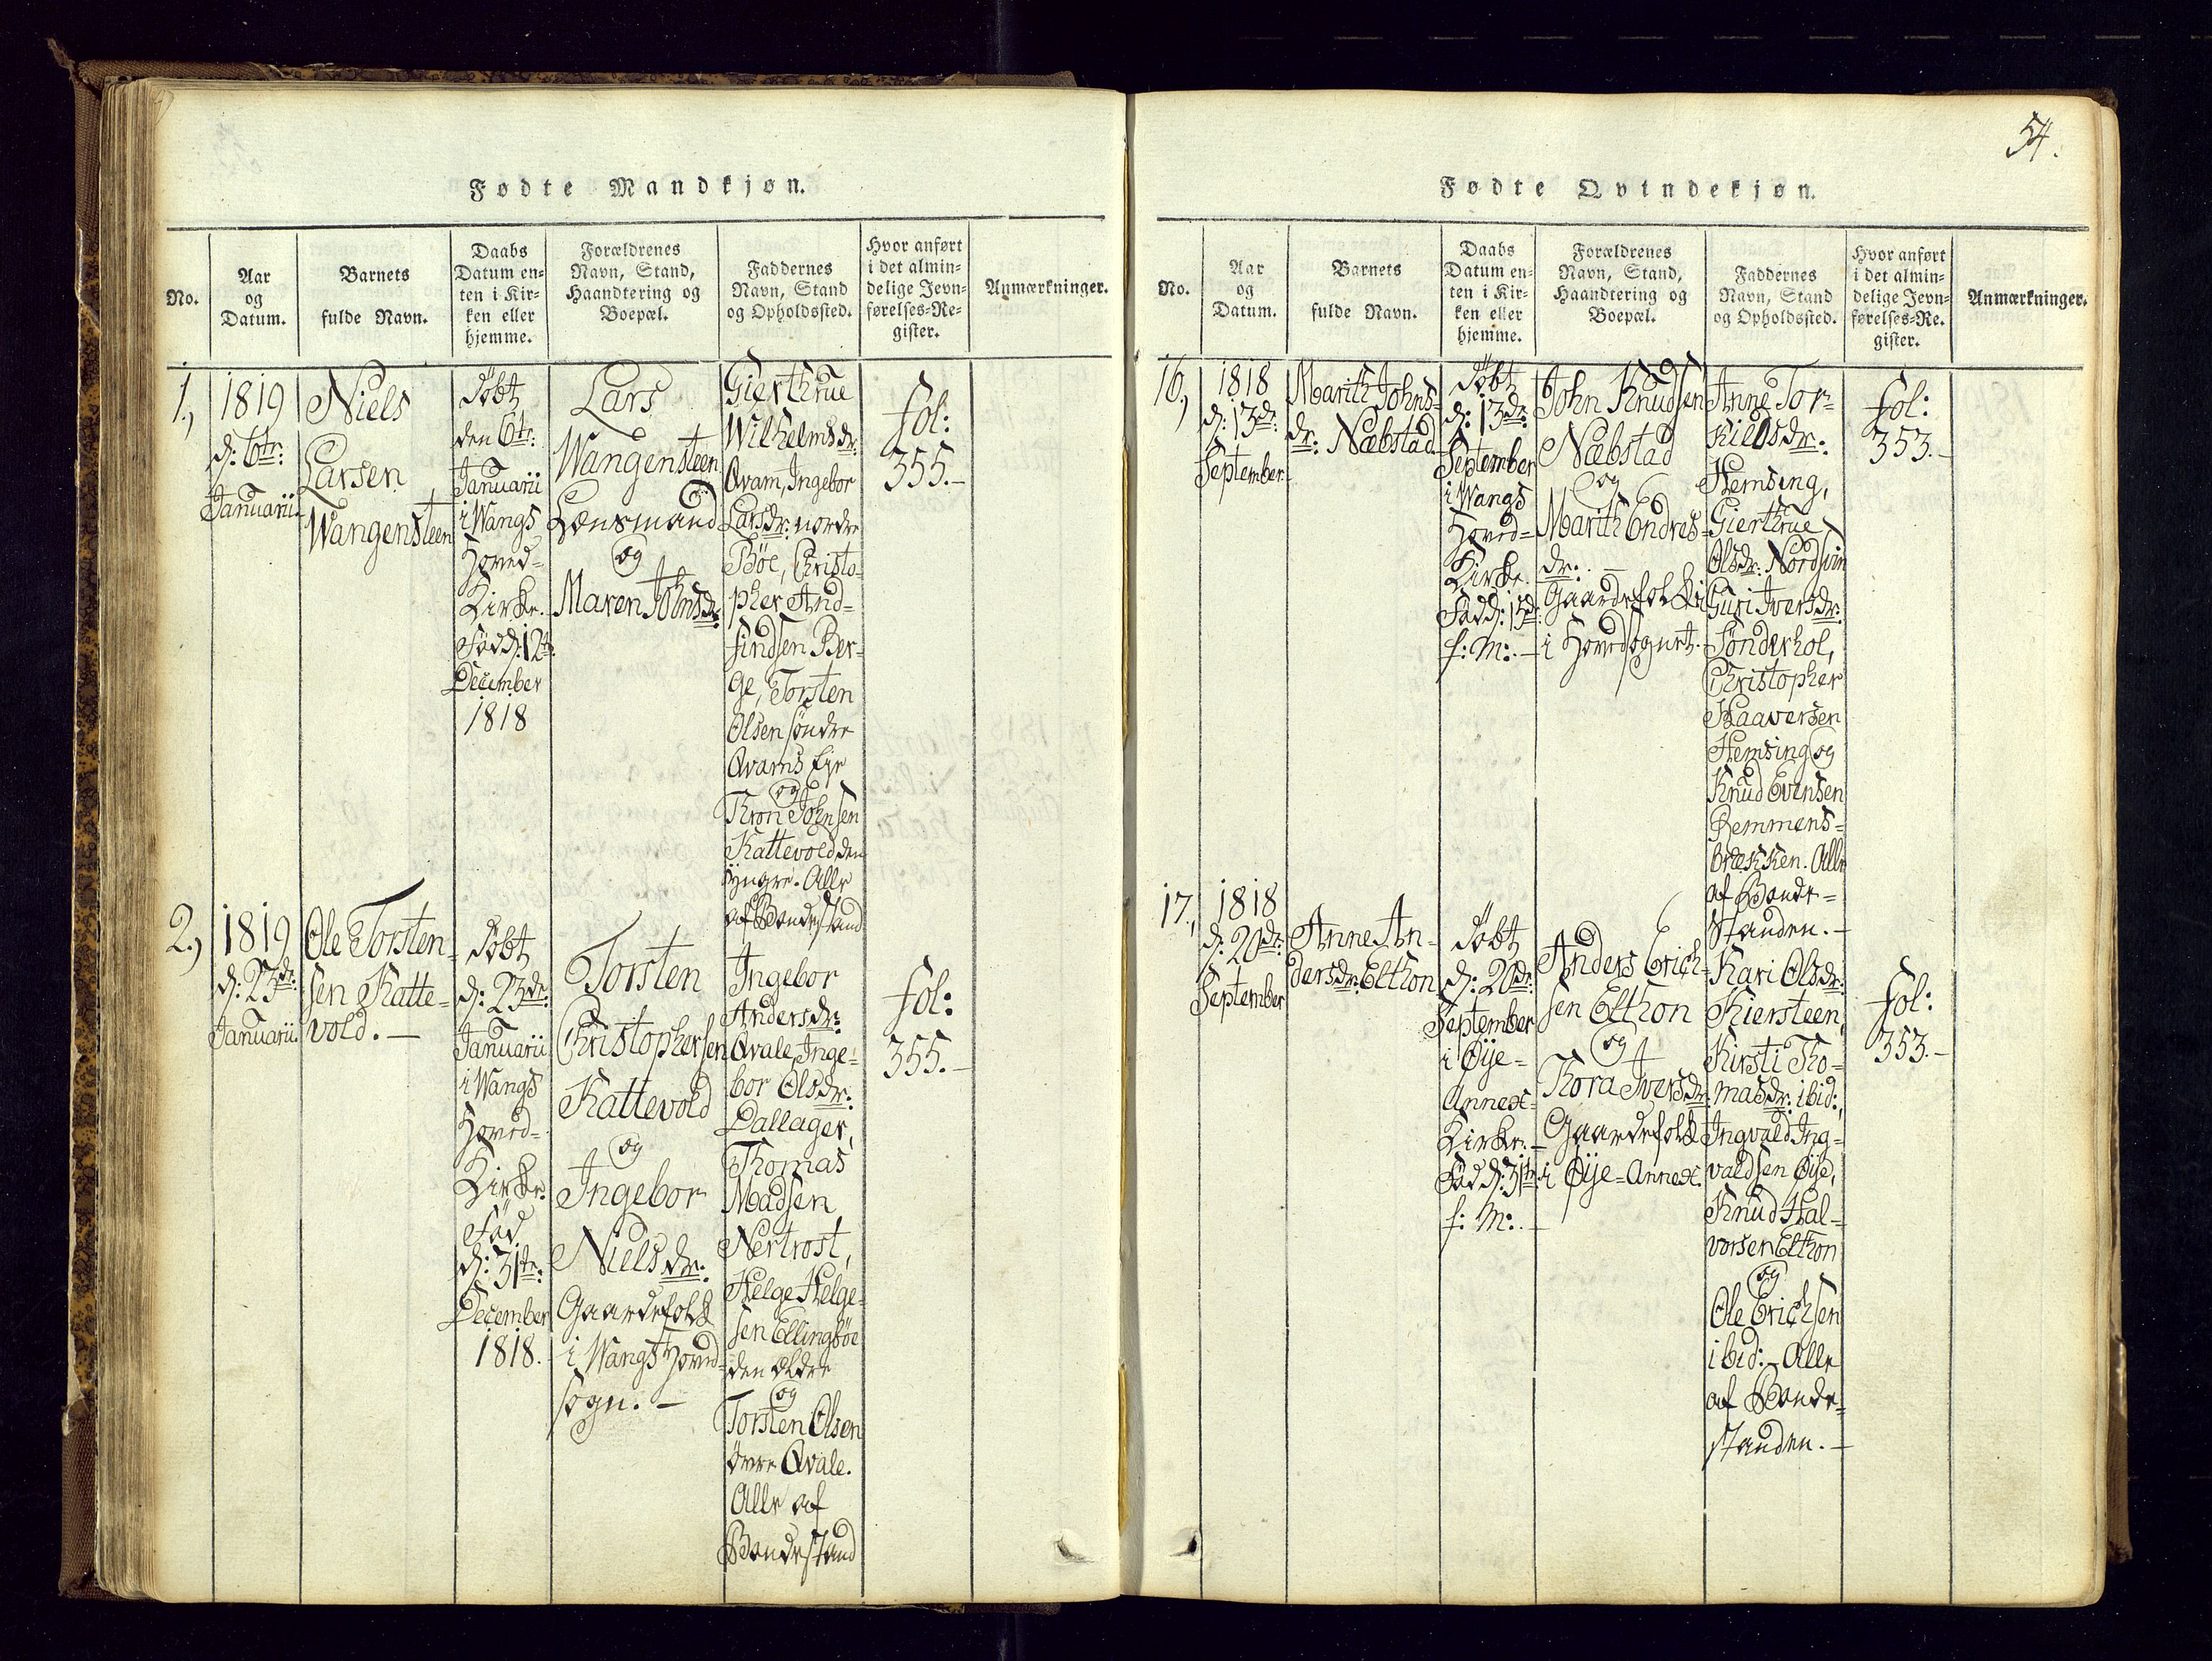 54.
Fødte Mandkjøn.
No.
Aar
og
Datum.
Barnets
fulde Navn.
Daabs
Datum en-
ten i Kir-
ken eller
hjemme.
Forældrenes
Navn, Stand,
Haandtering og
Boepæl.
Faddernes
Navn, Stand
og Opholdssted.
Hvor anført
i det almin-
delige Jevn-
førelses-Re-
gister.
Anmærkninger.
1.,
1819
d: 6te:
Januarii.
Niels
Larsen
Wangensteen
Døbt
den 6te:
Januarii
i Wangs
Hoved-
Kirke.
Fød d: 12te
December
1818
Lars
Wangensteen
Lænsmand
og
Maren Johnsdr:
Gierthrue
Wilhelmsdr:
Qvam, Ingebor
Larsdr: nordre
Bøe, Christo-
pher And-
findsen Ber-
ge, Torsten
Olsen søndre
Qvams Eye
og
Thron Johnsen
Kattevold den
yngre. Alle
af Bondestand
fol:
355.-
2.,
1819
d: 23de:
Januarii.
Ole Torsten-
sen Katte-
vold. -
Døbt
d: 23de:
Januarii
i Wangs
Hoved-
Kirke.
Fød
d: 31te:
December
1818.
Torsten
Christophersen
Kattevold
og
Ingebor
Nielsdr:
Gaardefolk
i Wangs Hoved-
sogn. -
Ingebor
Andersdr:
Qvale, Inge-
bor Olsdr:
Dallager,
Thomas
Madsen
Nertrost,
Helge Helge-
sen Ellingbøe
den ældre
og
Torsten Olsen
øvre Qvale.
Alle af
Bondestand
fol:
355.-
Fødte Qvindekjøn.
No.
Aar
og
Datum.
Barnets
fulde Navn.
Daabs
Datum en-
ten i Kir-
ken eller
hjemme.
Forældrenes
Navn, Stand,
Haandtering og
Boepæl.
Faddernes
Navn, Stand
og Opholdssted.
Hvor anført
i det almin-
delige Jevn-
førelses-Re-
gister.
Anmærkninger.
16.,
1818
d: 13de:
September.
Marith Johns-
dr: Næbstad
Døbt
d: 13de:
September
i Wangs
Hoved-
Kirke.
Fød d: 15d:
f: M: -
John Knudsen
Næbstad
og
Marith Endres-
dr: -
Gaardefolk
i Hovedsognet.
Anne Tor-
kildsdr:
Hemsing,
Gierthrue
Olsdr: Nordsvin
Guri Iversdr:
Sønderhol,
Christopher
Haaversen
Hemsing og
Knud Evensen
Remmens-
brækken. Alle
af Bonde-
standen. -
fol:
353.-
17.,
1818
d: 20de:
September
Anne An-
dersdr: Elthon
Døbt
d: 20de:
September
i Øye-
Annex-
Kirke. -
Fød d: 31te:
f: M: -
Anders Erich-
sen Elthon
og
Thora Iversdr:
Gaardefolk
i Øye-Annex.
Kari Olsdr:
Kiersteen,
Kirsti Tho-
masdr: ibid:,
Ingvald Ing-
valdsen Øye,
Knud Hal-
vorsen Elthon
og
Ole Erichsen
ibid: Alle
af Bonde-
standen. -
fol:
353.-